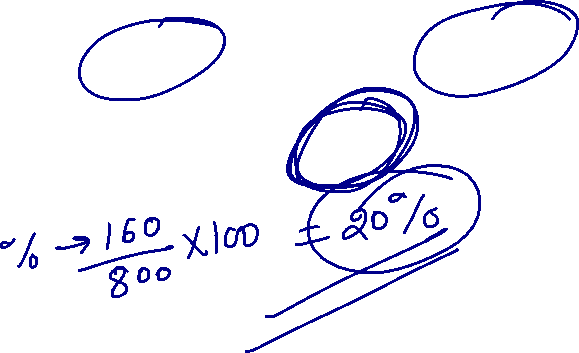 % → 160/800 × 100 = 20%